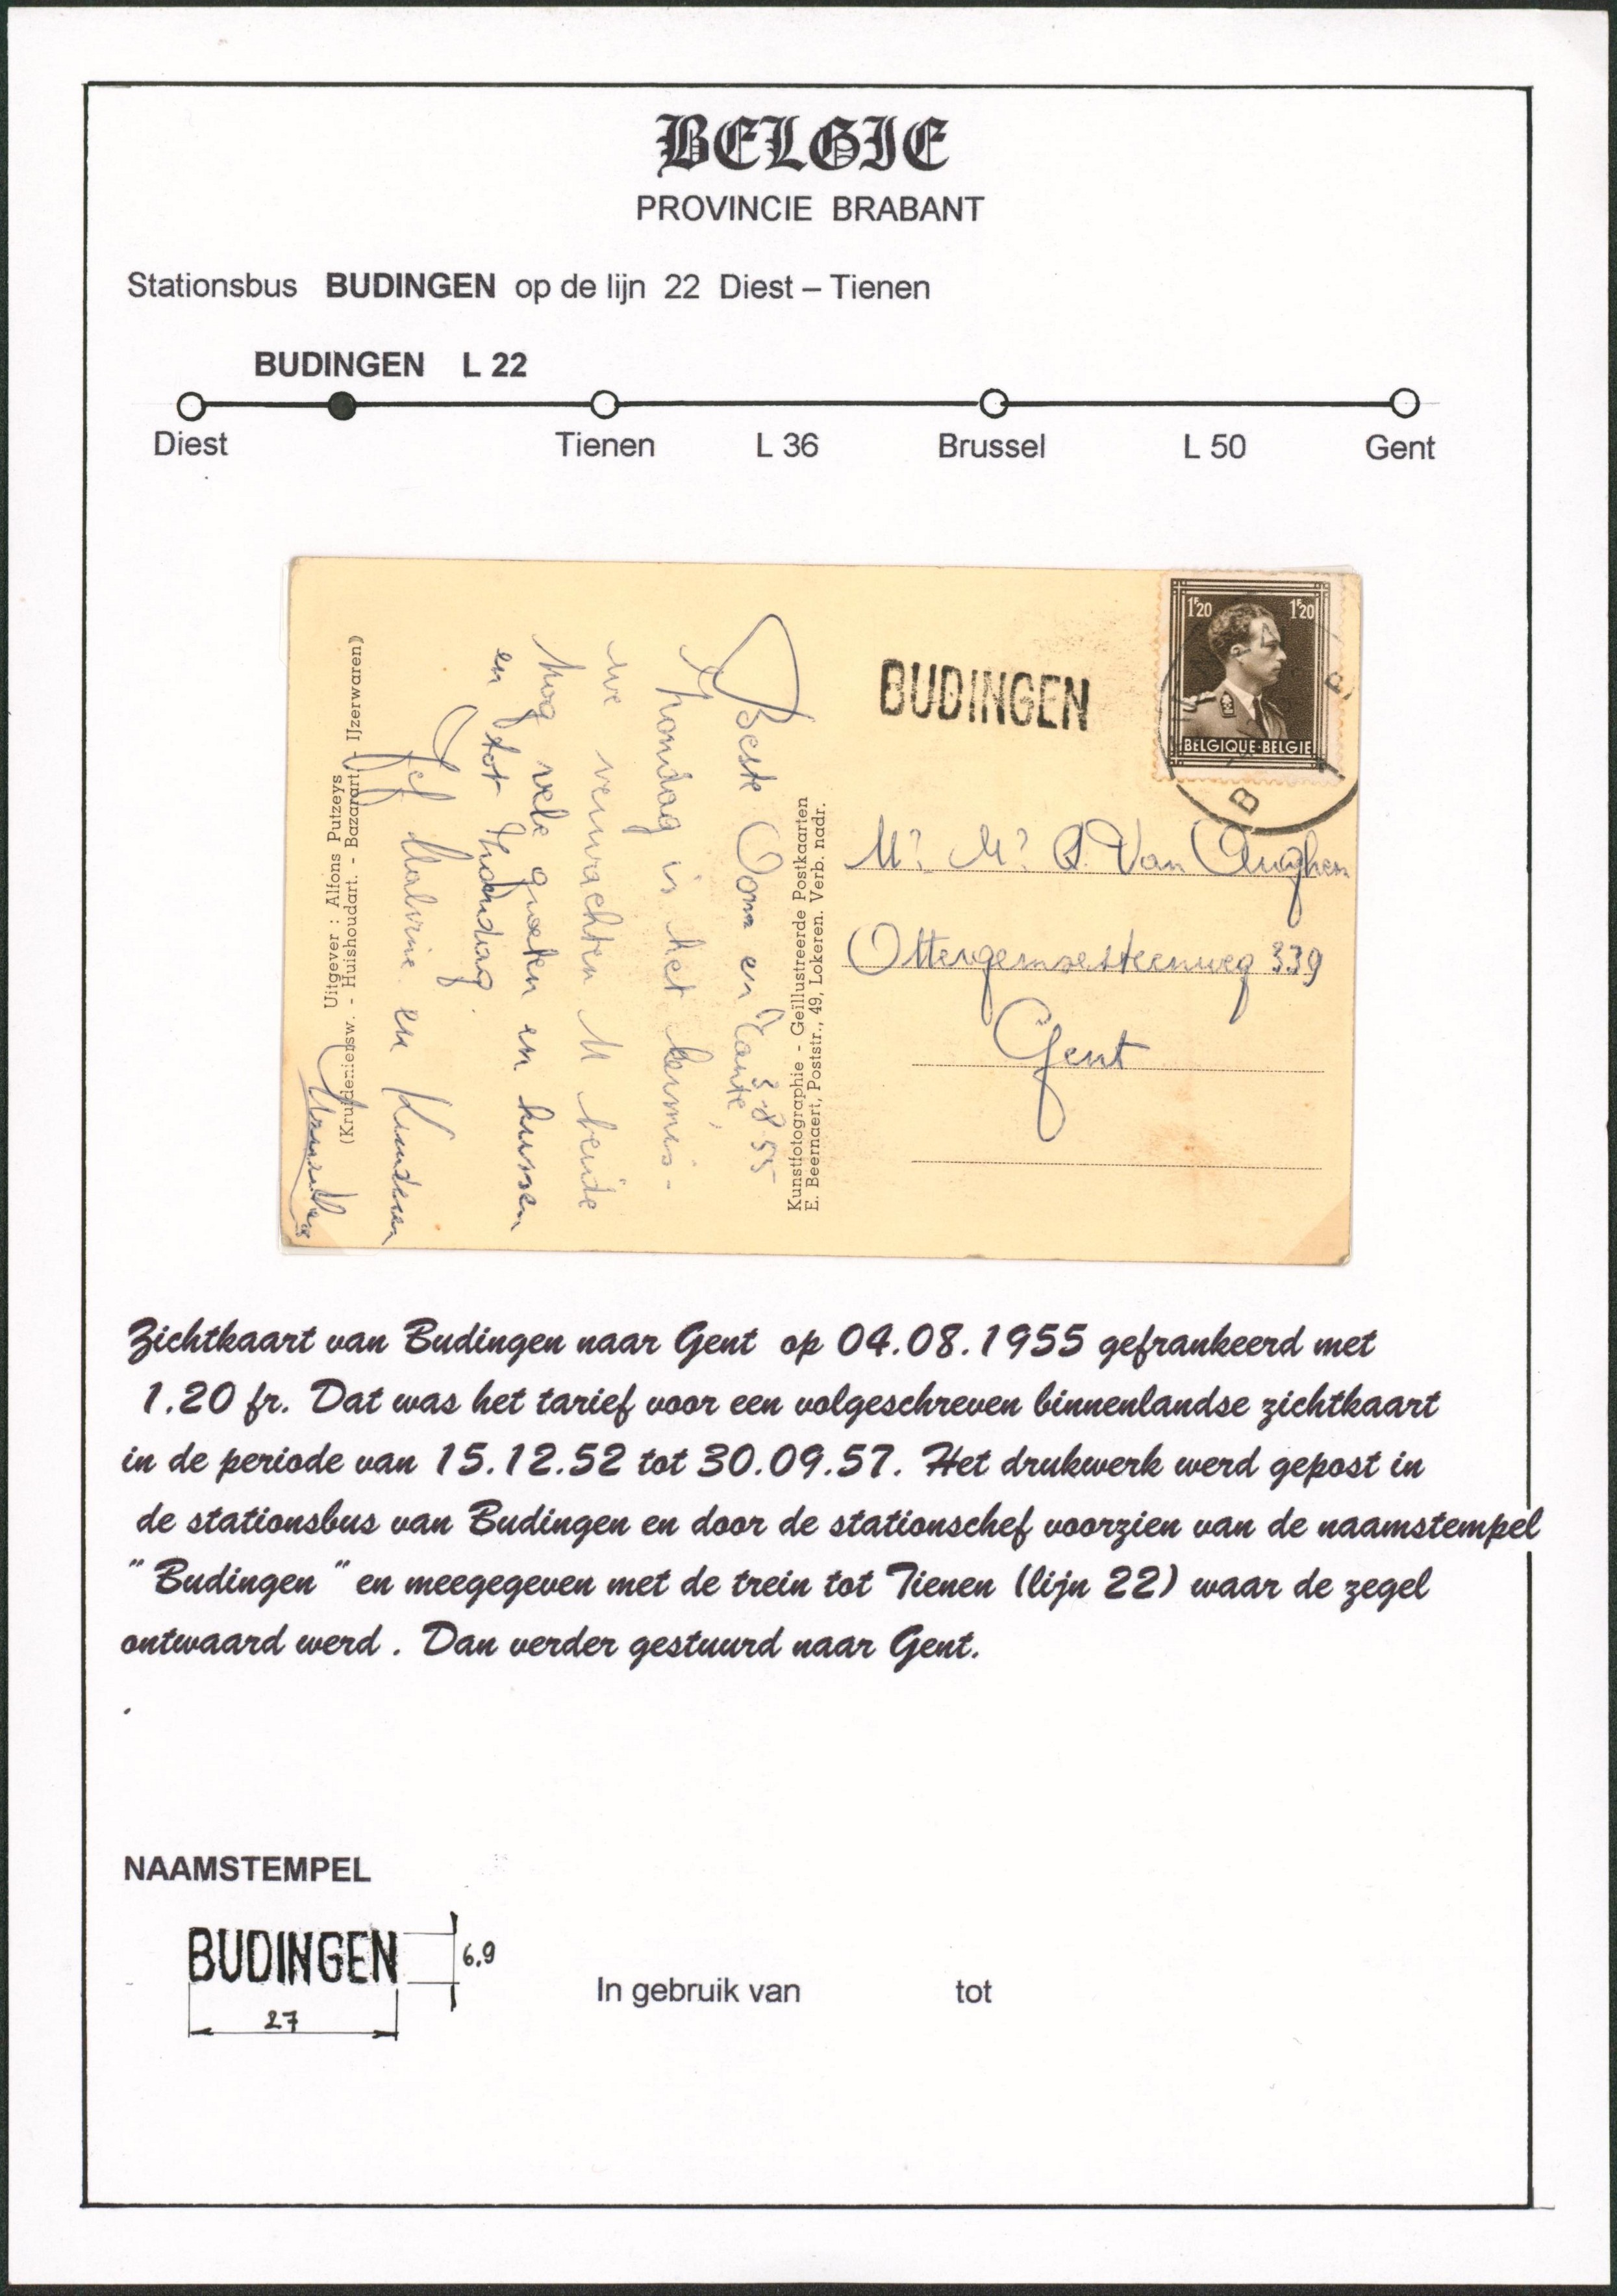 BELGIE
PROVINCIE BRABANT
Stationsbus BUDINGEN op de lijn 22 Diest – Tienen
BUDINGEN L 22
Diest Tienen L 36 Brussel L 50 Gent
1F20 1F20
BELGIQUE-BELGIE
B
BUDINGEN
Mr. Mr. P. Van
Ottergemsesteenweg 339
Gent
3-8-55
Beste Oom en Tante,
Zhondag is het kermis -
we verwachten U beide
Nog vele groeten en kussen
en tot Zhondag.
Jef Malvine en Kinderen
Kunstfotographie - Geïllustreerde Postkaarten
E. Beernaert, Poststr., 49, Lokeren. Verb. nadr.
Uitgever : Alfons Putzeys
(Kruideniersw. - Huishoudart. - Bazarart. - IJzerwaren)
Zichtkaart van Budingen naar Gent op 04.08.1955 gefrankeerd met
1.20 fr. Dat was het tarief voor een volgeschreven binnenlandse zichtkaart
in de periode van 15.12.52 tot 30.09.57. Het drukwerk werd gepost in
de stationsbus van Budingen en door de stationschef voorzien van de naamstempel
" Budingen " en meegegeven met de trein tot Tienen (lijn 22) waar de zegel
ontwaard werd . Dan verder gestuurd naar Gent.
.
NAAMSTEMPEL
BUDINGEN 6,9
27
In gebruik van tot